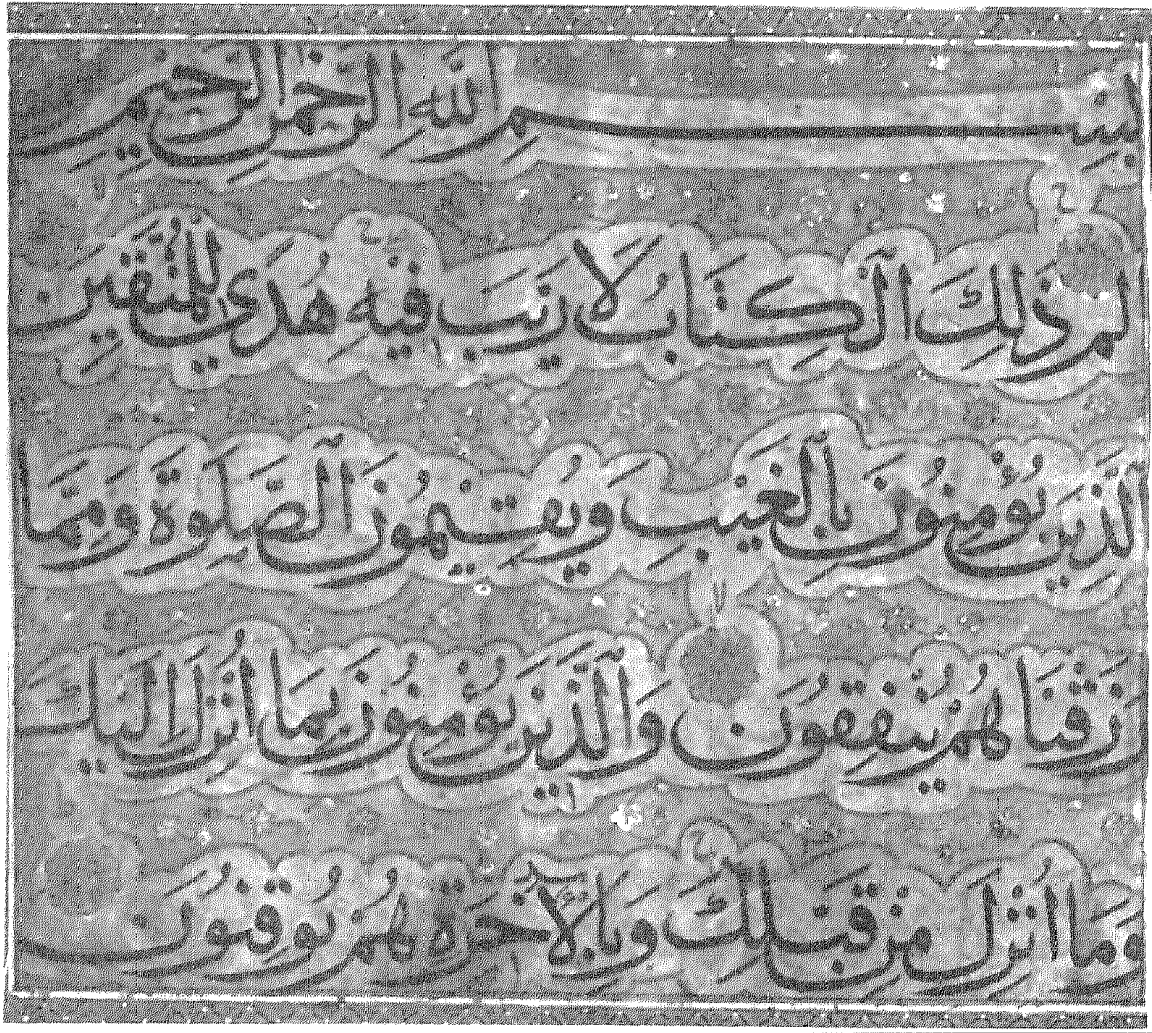 بِسْمِ اللَّهِ الرَّحْمٰنِ الرَّحِيمِ
الم ذَلِكَ ٱلْكِتَابُ لَا رَيْبَ فِيهِ هُدًى لِلْمُتَّقِينَ
ٱلَّذِينَ يُؤْمِنُونَ بِٱلْغَيْبِ وَيُقِيمُونَ ٱلصَّلَوٰةَ وَمِمَّا
رَزَقْنَاهُمْ يُنْفِقُونَ وَٱلَّذِينَ يُؤْمِنُونَ بِمَا أُنْزِلَ إِلَيْكَ
وَمَا أُنْزِلَ مِنْ قَبْلِكَ وَبِالْآخِرَةِ هُمْ يُوقِنُونَ